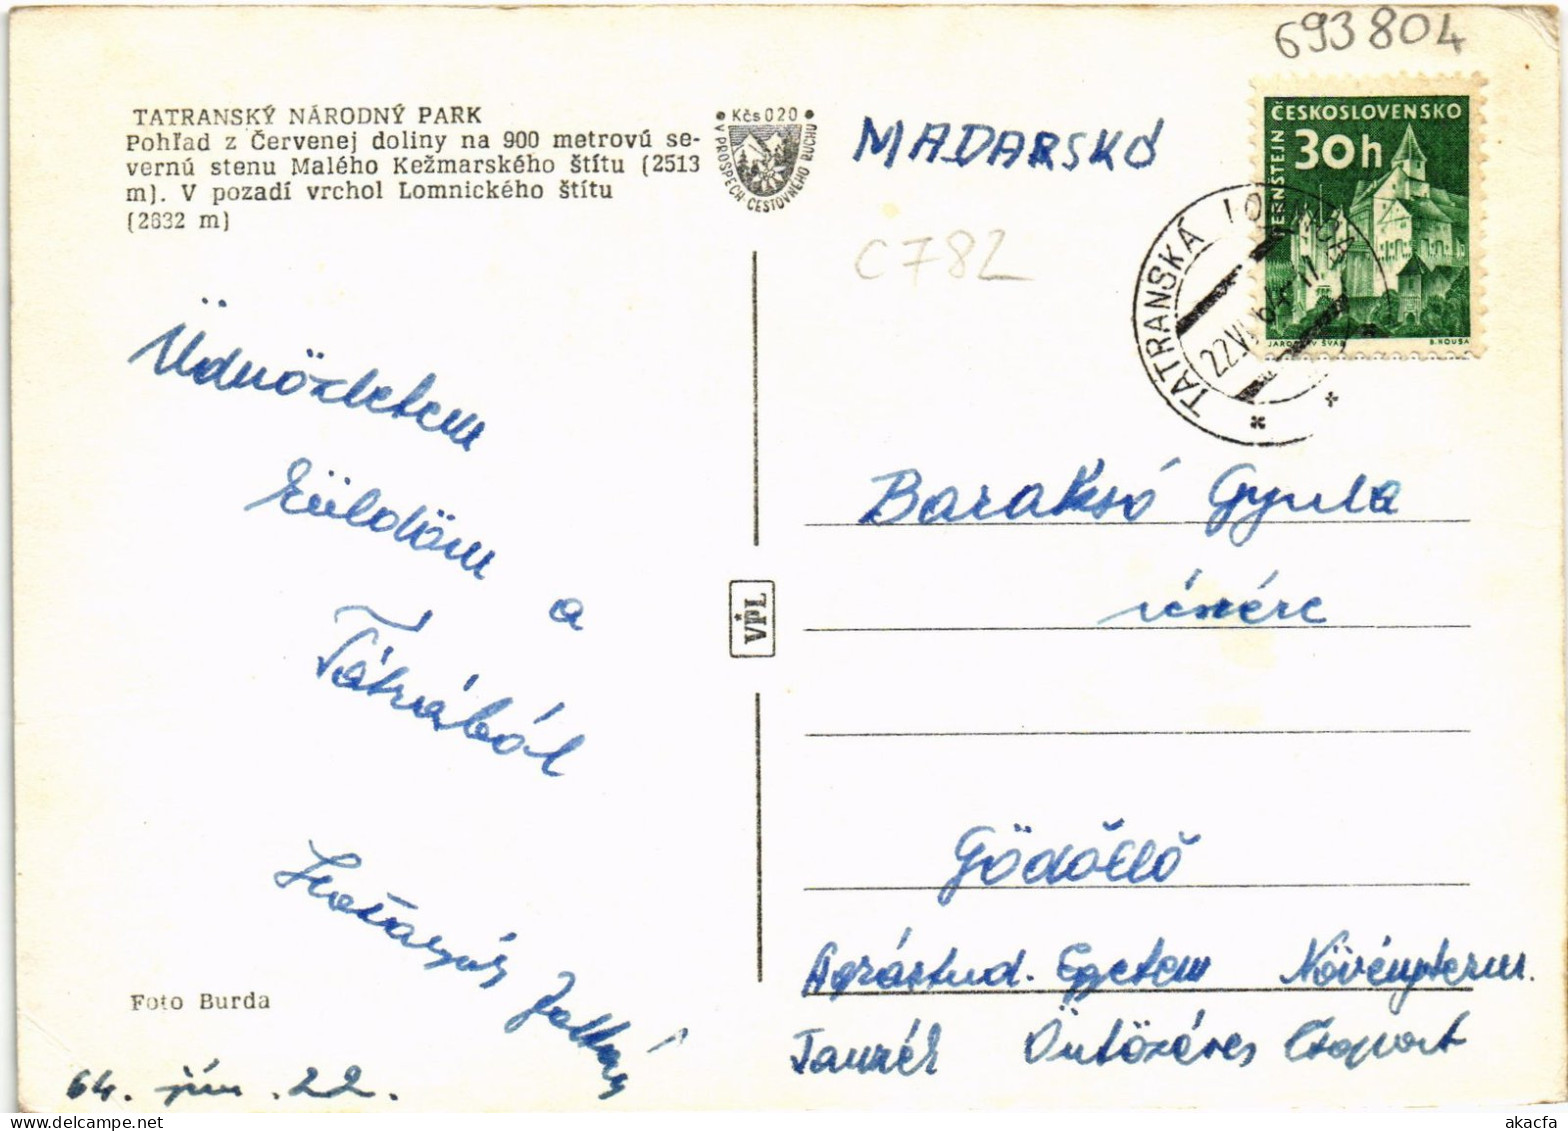 693804
TATRANSKÝ NÁRODNÝ PARK
Pohľad z Červenej doliny na 900 metrovú se-
vernú stenu Malého Kežmarského štítu (2513
m). V pozadí vrchol Lomnického štítu
(2632 m)
Kčs 020
V PROSPECH CESTOVNÉHO RUCHU
MADARSKÓ
C782
ČESKOSLOVENSKO
30h
PERNŠTEJN
JAROSLAV ŠVÁB
B. HOUSA
TATRANSKÁ LOMNICA
22.VI.64-11
Üdvözletem
küldöm
a
Tátrából
Zoltán
64. jún. 22.
Foto Burda
VPL
Baraksó Gyula
részére
Gödöllő
Agrártud. Egyetem Növényterm.
Tanszék Öntözéses Csoport
akacfa